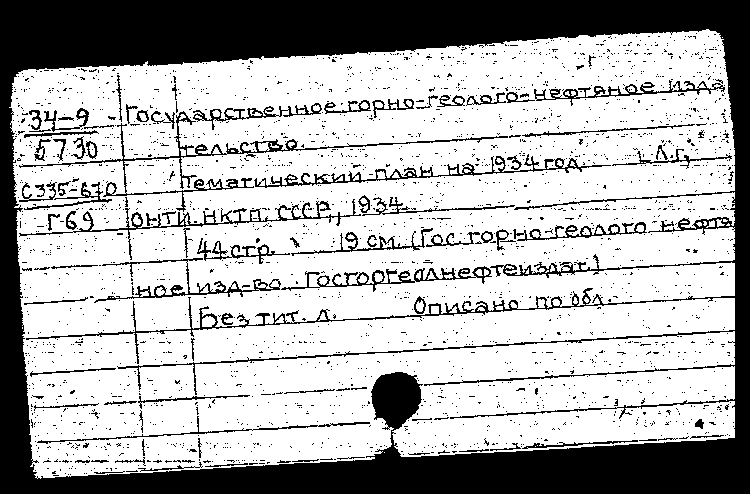 34-9 Государственное горно-геолого-нефтяное изда
5730 тельство.
С335-670 Тематический план на 1934 год. Л.г,
Г69 ОНТИ НКТП, СССР, 1934.
44 стр. 19 см. (Гос. горно-геолого нефтя
ное изд-во. Госгоргеолнефтеиздат.)
Без тит. л. Описано по обл.